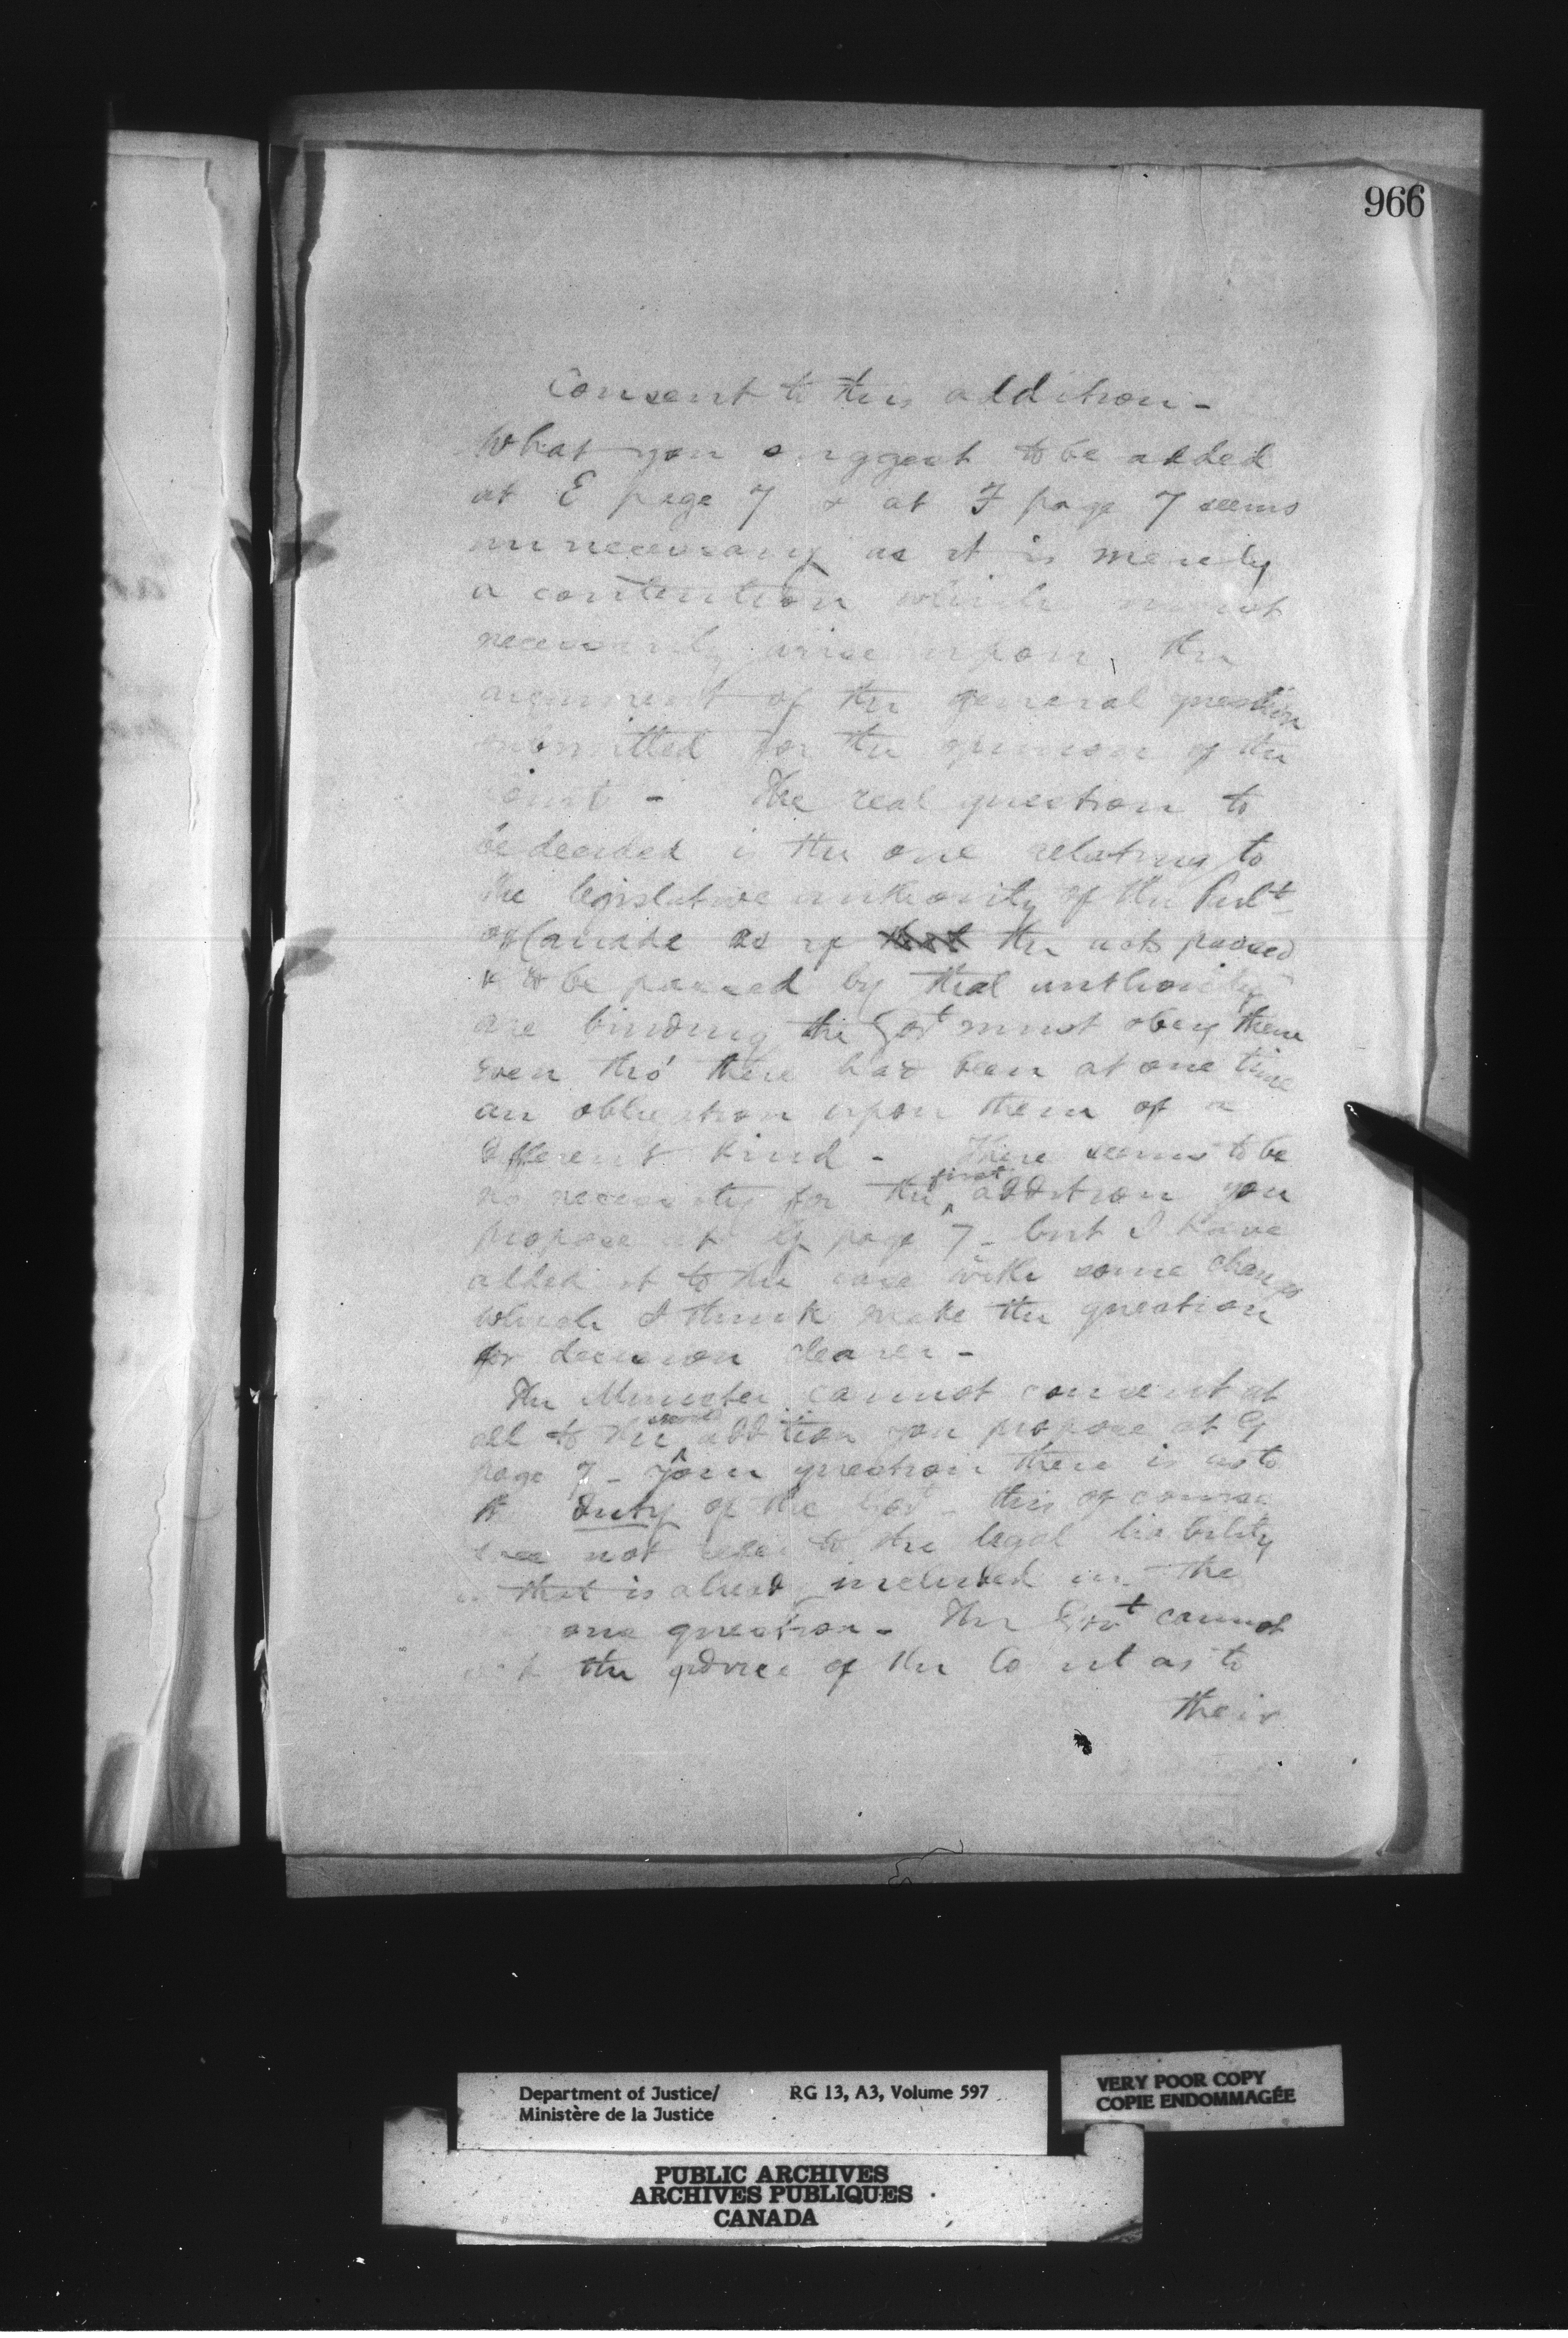 966
Consent to this addition -
What you suggest to be added
at E page 7 & at F page 7 seems
unnecessary as it is merely
a contention which must
necessarily arise upon the
argument of the general question
submitted for the opinion of the
Court - The real question to
be decided is the one relating to
the legislative authority of the Parlt
of Canada as if the acts passed
& to be passed by that authority
are binding the Govt must obey them
even tho' there had been at one time
an obligation upon them of a
different kind - There seems to be
no necessity for the first addition you
propose at G page 7 - but I have
added it to the case with some changes
which I think make the question
for decision clearer -
The Minister cannot consent at
all to the second addition you propose at G
page 7 - your question there is as to
duty of the Govt - this of course
not refer to the legal liability
that is already included in the
one question - The Govt cannot
the advice of the Court as to
their
Department of Justice/
Ministère de la Justice
RG 13, A3, Volume 597
VERY POOR COPY
COPIE ENDOMMAGÉE
PUBLIC ARCHIVES
ARCHIVES PUBLIQUES
CANADA